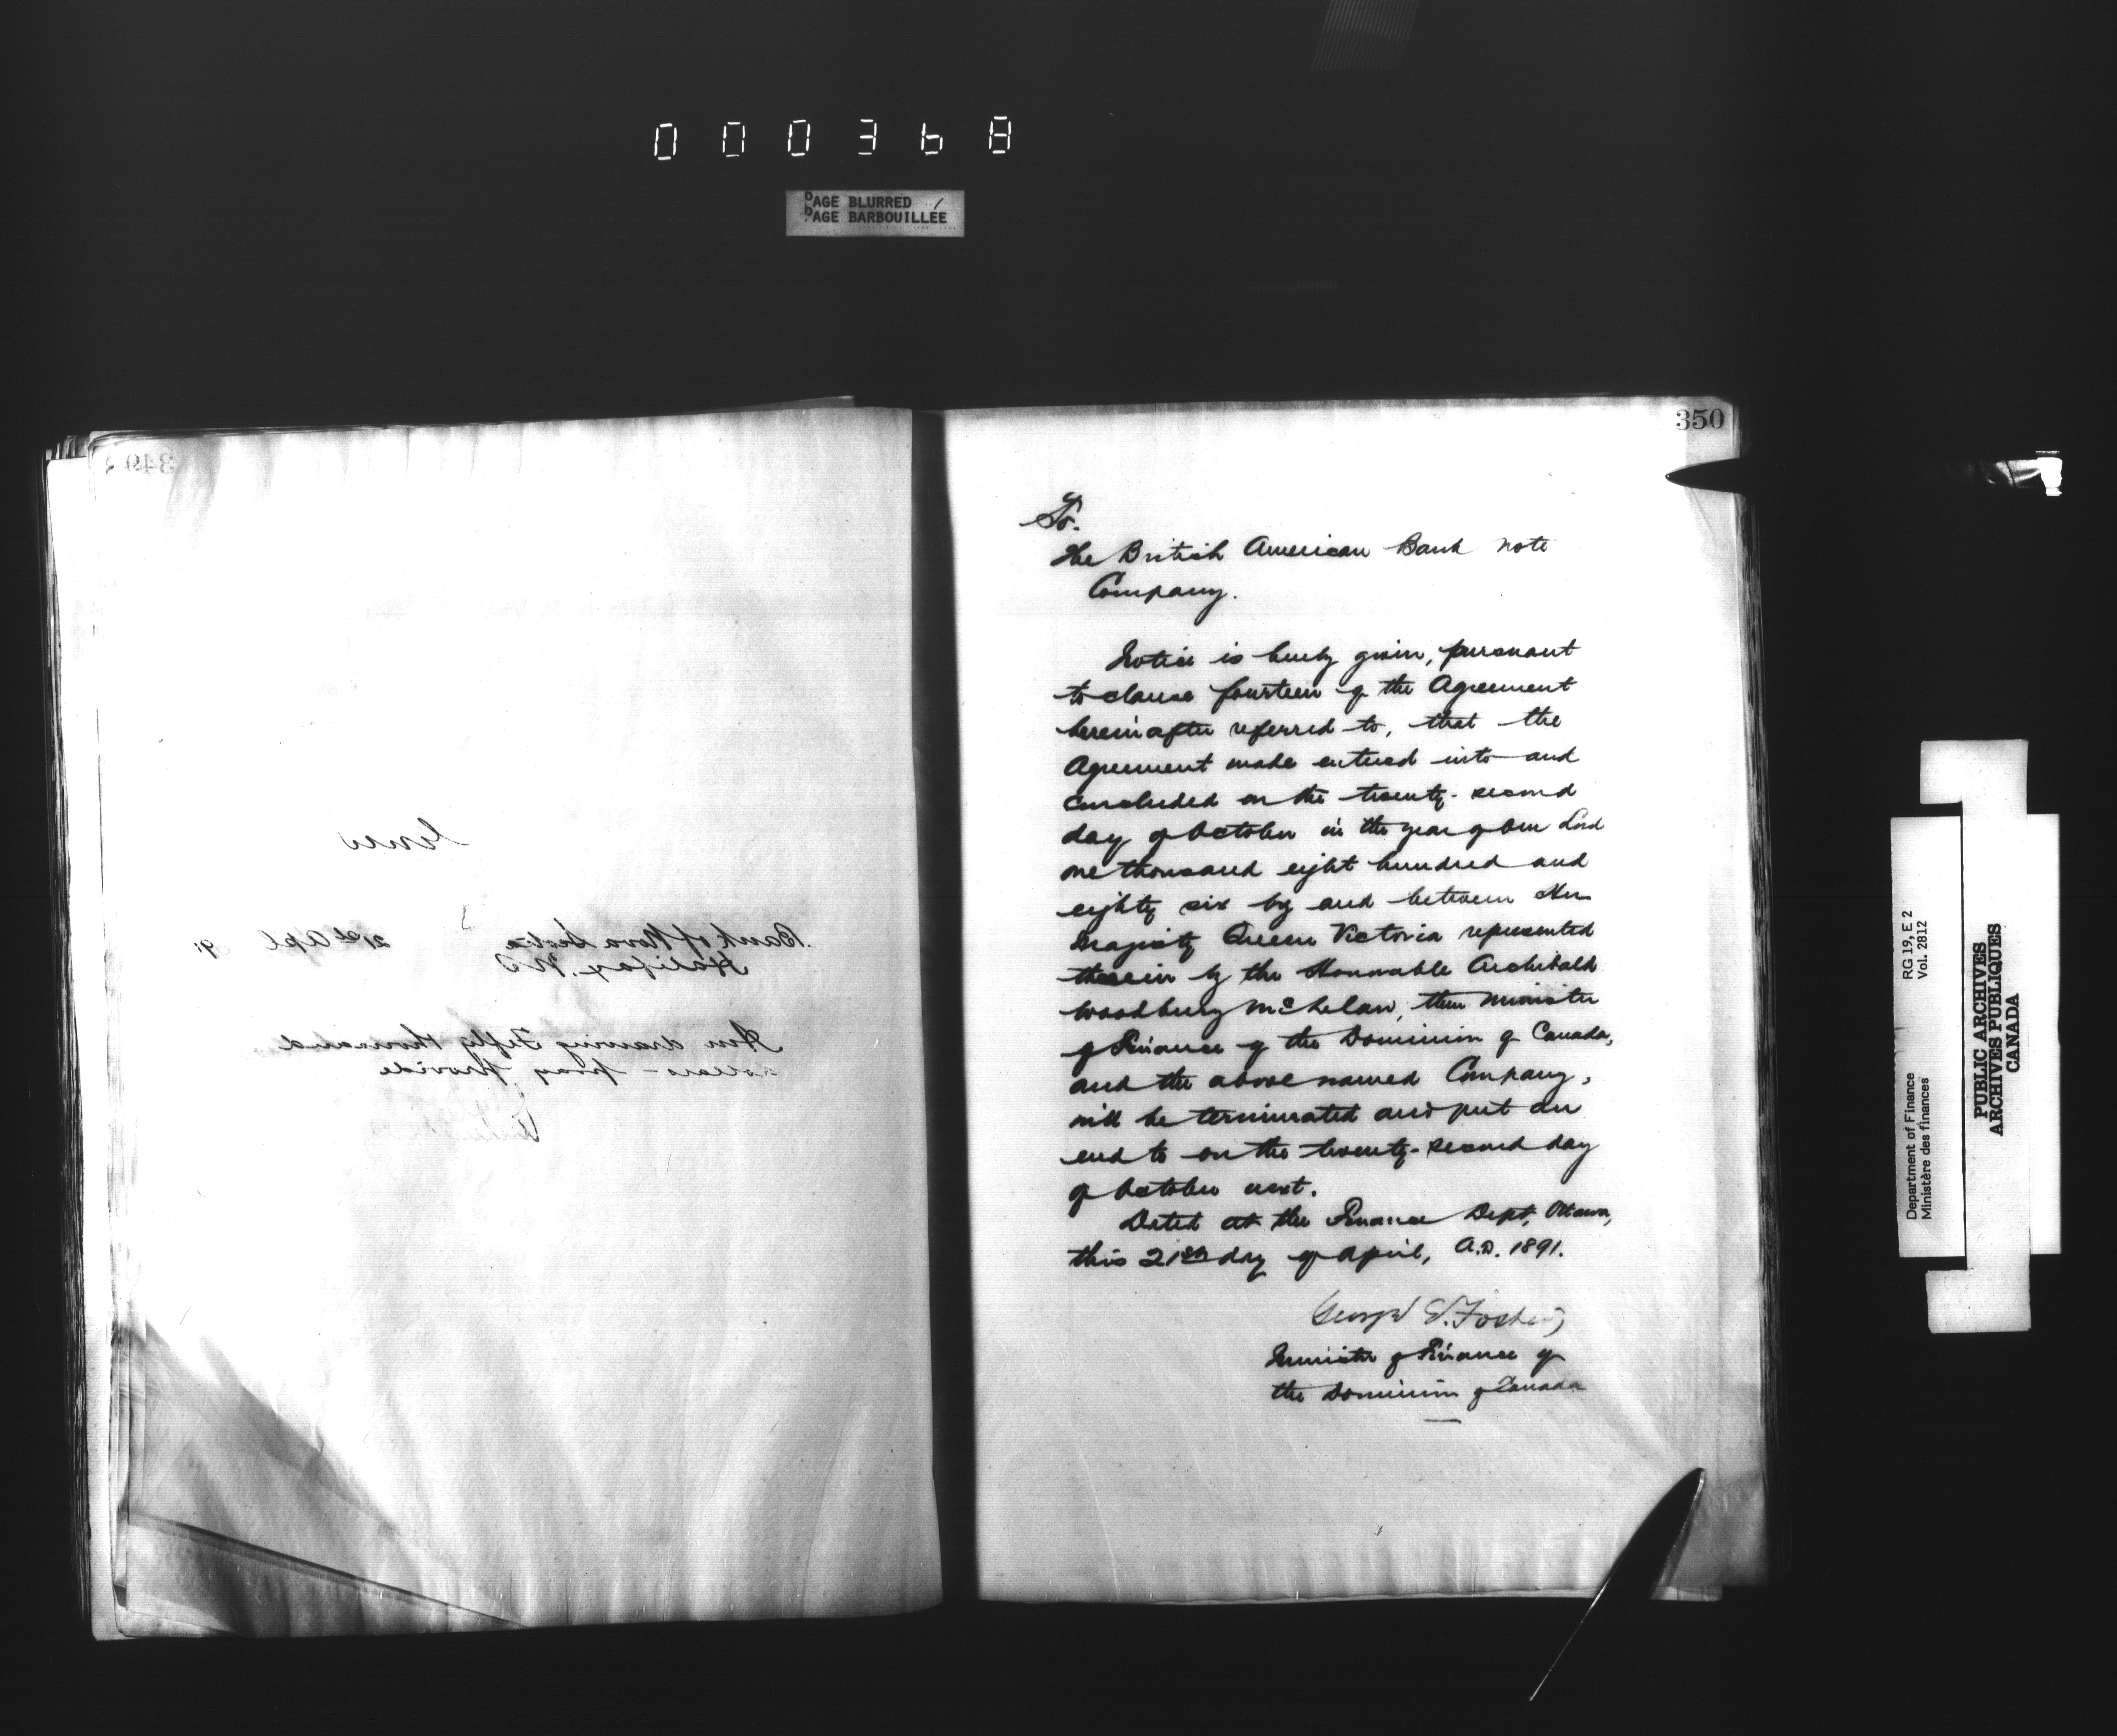 000368
PAGE BLURRED
PAGE BARBOUILLEE
349
Bank of Nova Scotia 21st Apl 91
Halifax. N S
Am drawing Fifty thousand
dollars - pray provide
350
To.
The British American Bank note
Company.
Notice is hereby given, pursuant
to clause fourteen of the Agreement
hereinafter referred to, that the
Agreement made entered into and
concluded on the twenty-second
day of October in the year of Our Lord
one thousand eight hundred and
eighty six by and between Her
Majesty Queen Victoria represented
therein by the Honourable Archibald
Woodbury McLelan, then Minister
of Finance of the Dominion of Canada,
and the above named Company,
will be terminated and put an
end to on the twenty-second day
of October next.
Dated at the Finance Dept, Ottawa,
this 21st day of April, A.D. 1891.
George E. Foster
Minister of Finance of
the Dominion of Canada
Department of Finance RG 19, E 2
Ministère des finances Vol. 2812
PUBLIC ARCHIVES
ARCHIVES PUBLIQUES
CANADA